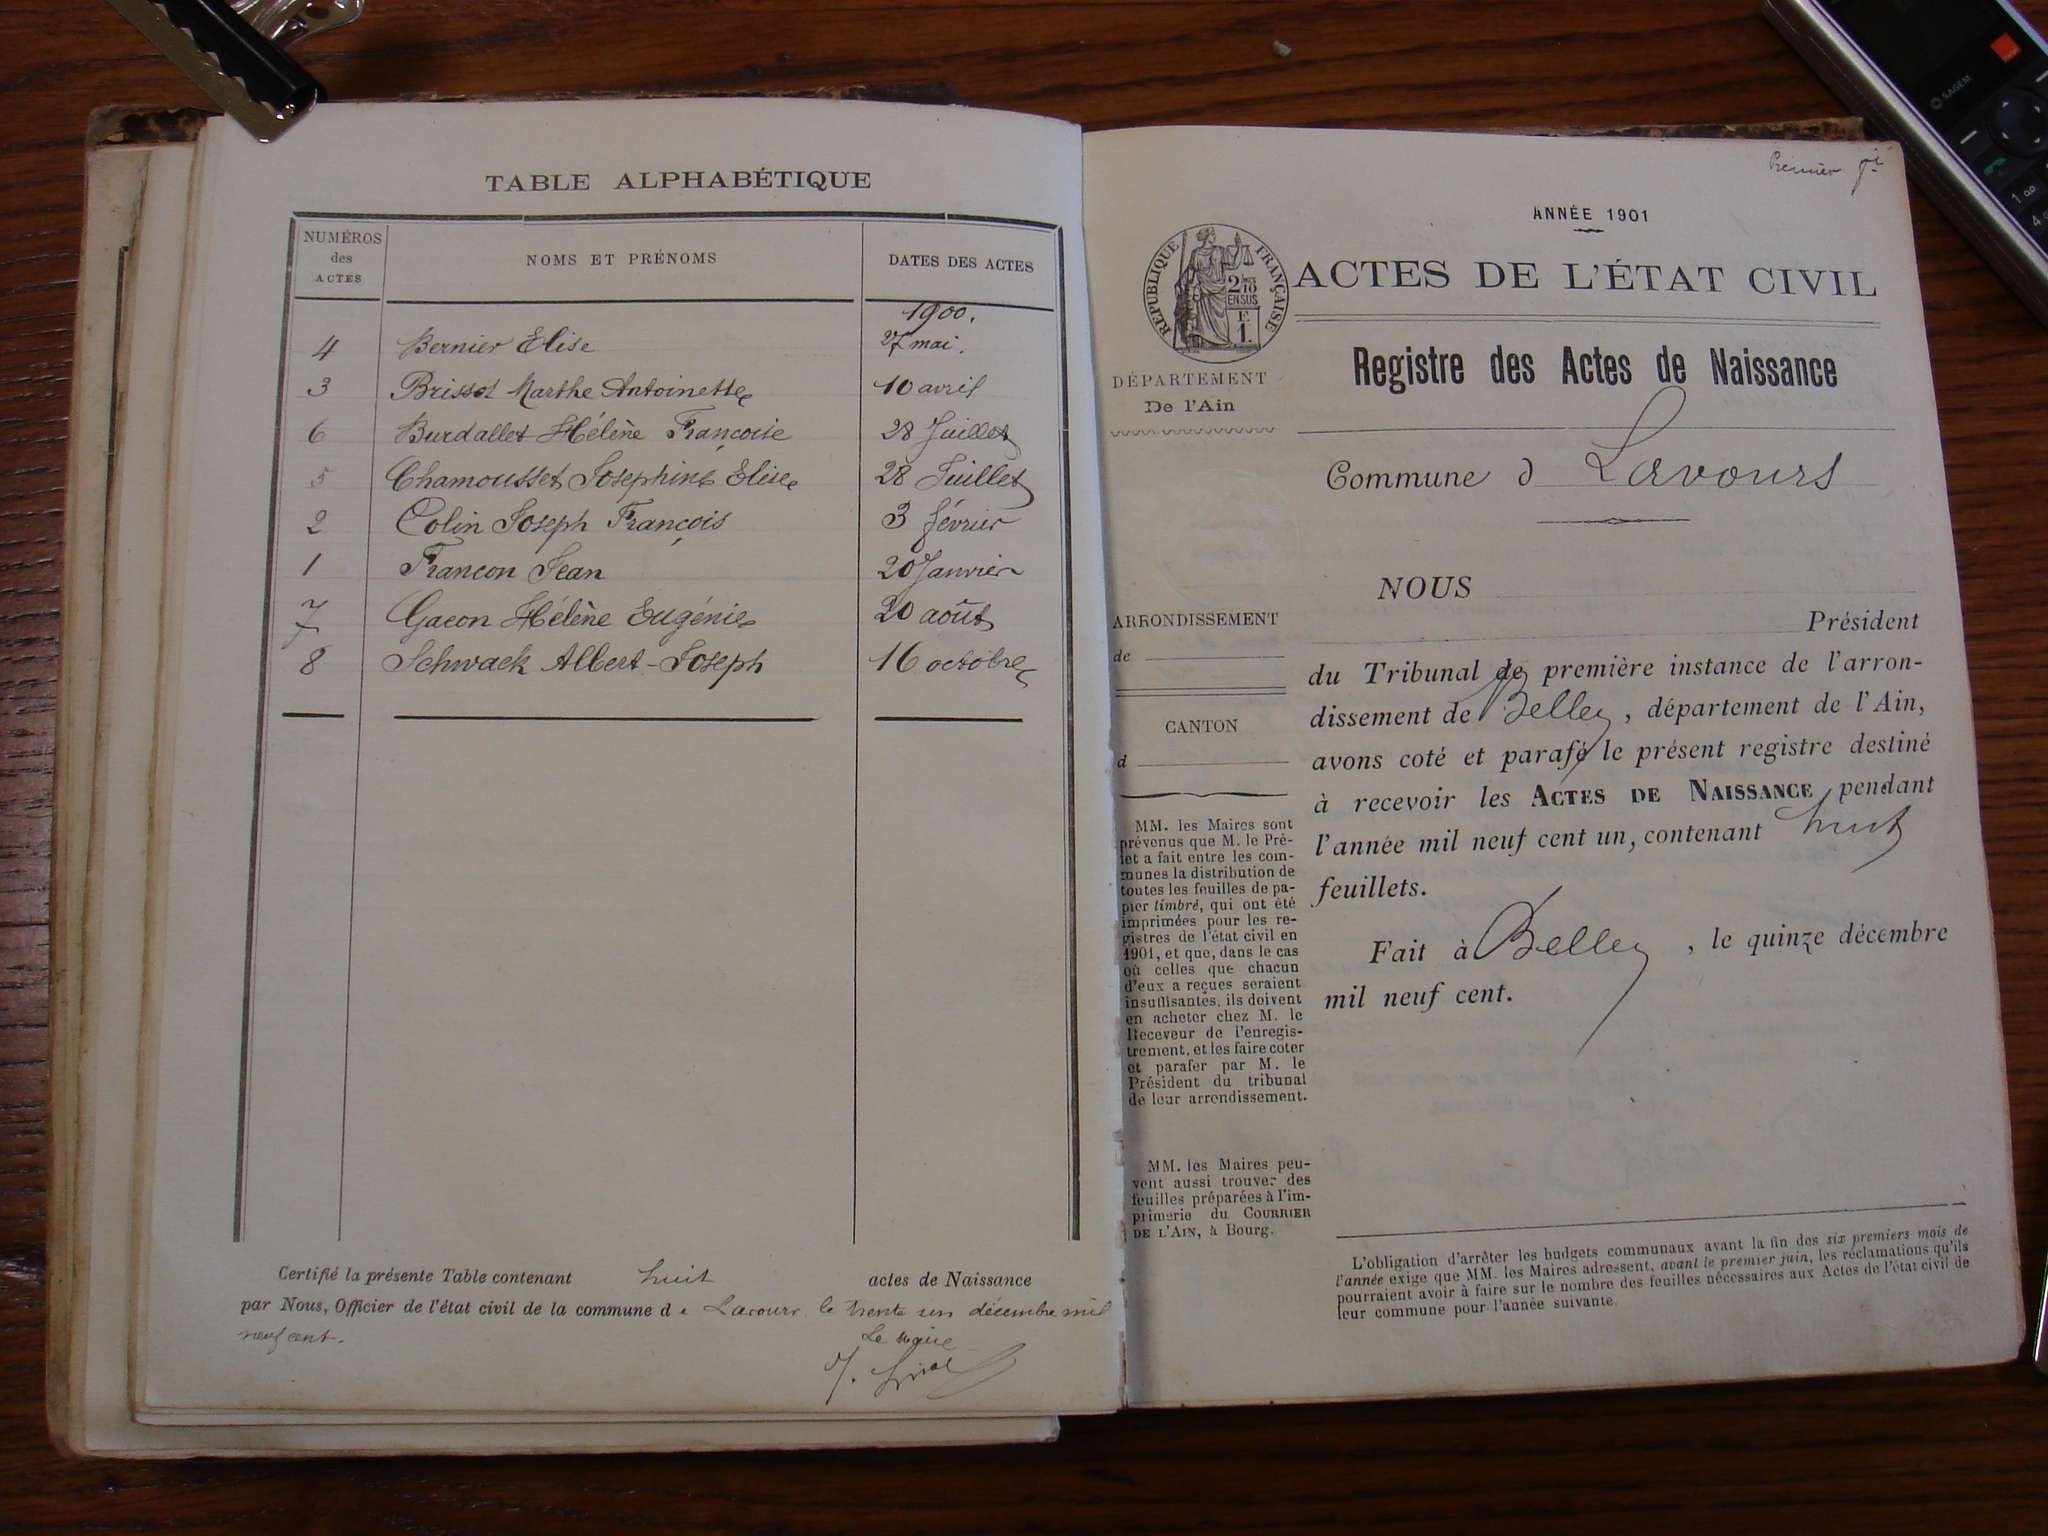 TABLE ALPHABÉTIQUE
NUMÉROS des ACTES
NOMS ET PRÉNOMS
DATES DES ACTES
1900.
4 Bernier Elise 27 mai.
3 Brissot Marthe Antoinette 10 avril
6 Burdallet Hélène Françoise 28 Juillet
5 Chamousset Joséphine Elise 28 Juillet
2 Colin Joseph François 3 février
1 Françon Jean 20 Janvier
7 Gacon Hélène Eugénie 20 août
8 Schwack Albert-Joseph 16 octobre
Certifié la présente Table contenant huit actes de Naissance
par Nous, Officier de l'état civil de la commune de Lavours le trente un décembre mil
neuf cent.
Le Maire
Premier
ANNÉE 1901
ACTES DE L'ÉTAT CIVIL
RÉPUBLIQUE FRANÇAISE
2/10
EN SUS
F.
1.
DÉPARTEMENT
De l'Ain
Registre des Actes de Naissance
Commune d Lavours
ARRONDISSEMENT
de
CANTON
d
MM. les Maires sont
prévenus que M. le Pré-
fet a fait entre les com-
munes la distribution de
toutes les feuilles de pa-
pier timbré, qui ont été
imprimées pour les re-
gistres de l'état civil en
1901, et que, dans le cas
où celles que chacun
d'eux a reçues seraient
insuffisantes, ils doivent
en acheter chez M. le
Receveur de l'enregis-
trement, et les faire coter
et parafer par M. le
Président du tribunal
de leur arrondissement.
MM. les Maires peu-
vent aussi trouver des
feuilles préparées à l'im-
primerie du COURRIER
DE L'AIN, à Bourg.
NOUS
Président
du Tribunal de première instance de l'arron-
dissement de Belley, département de l'Ain,
avons coté et parafé le présent registre destiné
à recevoir les ACTES DE NAISSANCE pendant
l'année mil neuf cent un, contenant huit
feuillets.
Fait à Belley, le quinze décembre
mil neuf cent.
L'obligation d'arrêter les budgets communaux avant la fin des six premiers mois de
l'année exige que MM. les Maires adressent, avant le premier juin, les réclamations qu'ils
pourraient avoir à faire sur le nombre des feuilles nécessaires aux Actes de l'état civil de
leur commune pour l'année suivante.
SAGEM
1
4